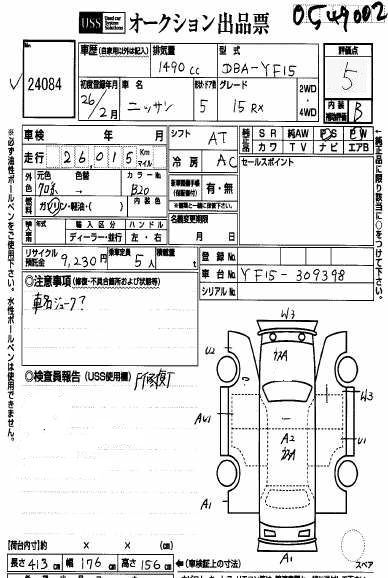 USS Used car System Solutions オークション出品票 0549002
24084
車歴 (自家用以外は記入) 排気量 1490 cc 型式 DBA-YF15
評価点 5
初度登録年月 26年2月 車名 ニッサン ドア数 5 グレード 15RX 2WD・4WD
内装補助評価 B
車検 年 月
シフト AT
純正品 SR 純AW PS PW
カワ TV ナビ エアB
走行 26,015 Km マイル
冷房 AC
セールスポイント
外色 元色 クロ系 色替 → カラーNo. B20 内装色
有・無
燃料 ガソリン・軽油・( )
名義変更期限 月 日
輸入車 年式 輸入区分 ディーラー・並行 ハンドル 左・右
リサイクル預託金 9,230円 乗車定員 5人 積載量 t
登録No.
車台No. YF15-309398
シリアルNo.
◎注意事項 (修復・不具合箇所および状態等)
車名ジューク?
◎検査員報告 (USS使用欄)
W3
U2
AU1
A1
W3
U1
A2
A1
A1
スペア
(荷台内寸)約 × × (cm)
長さ 413 cm 幅 176 cm 高さ 156 cm (車検証上の寸法)
※必ず油性ボールペンをご使用下さい。水性ボールペンは使用できません。
純正品に限り該当に○をつけて下さい。